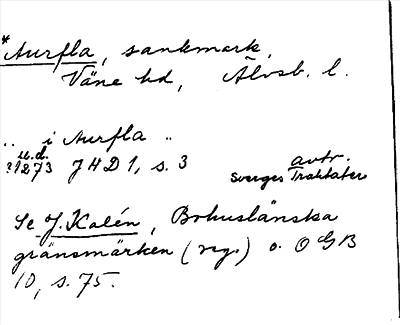 *Aurfla, sankmark,
Väne hd, Älvsb. l.
.. i Aurfla ..
u.d.
?1273 JHD 1, s. 3 avtr.
Sveriges Traktater
Se J. Kalén, Bohuslänska
gränsmärken (reg.) o. OGB
10, s. 75.